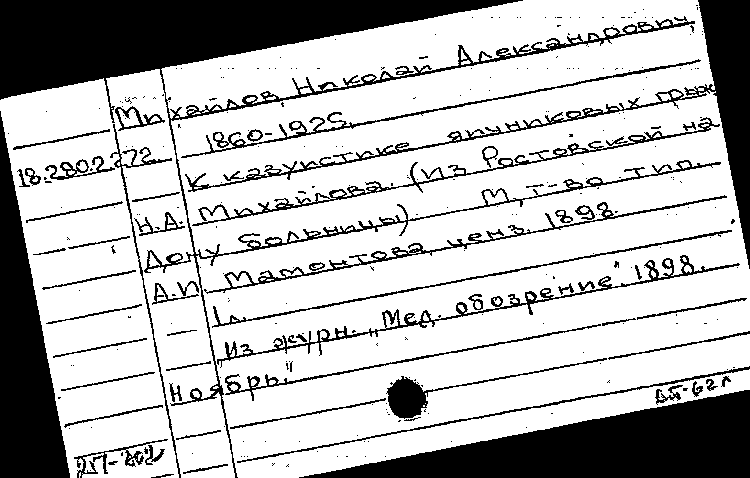 Михайлов, Николай Александрович,
1860-1925.
18.280.2.272.
К казуистике яичниковых грыж
Н.А. Михайлова. (Из Ростовской на
Дону больницы). М, т-во тип.
А.И. Мамонтова, ценз. 1898.
1 л.
„Из журн. „Мед. обозрение". 1898.
Ноябрь."